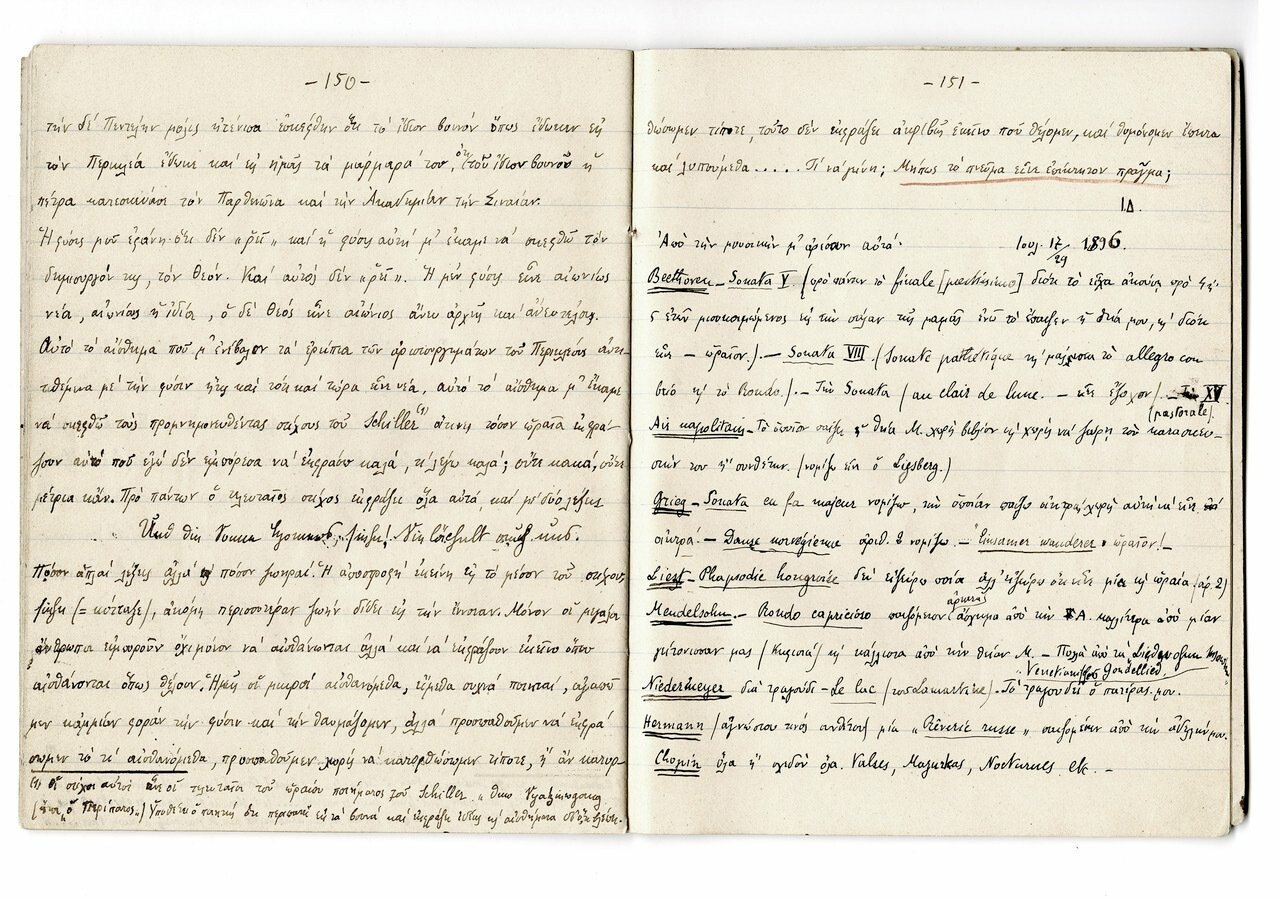 -150-
τὴν δὲ Πεντέλην μόλις ἠτένισα ἐσκέφθην ὅτι τὸ ἴδιον βουνὸν ὅπως ἔδωκεν εἰς
τὸν Περικλέα ἔδωκε καὶ εἰς ἡμᾶς τὰ μάρμαρά του, ὅτι τοῦ ἰδίου βουνοῦ ἡ
πέτρα κατεσκεύασε τὸν Παρθενῶνα καὶ τὴν Ἀκαδημίαν τὴν Σιναίαν.
Ἡ φύσις μοῦ ἐφάνη ὅτι δὲν „ῥεῖ“ καὶ ἡ φύσις αὐτὴ μ' ἔκαμε νὰ σκεφθῶ τὸν
δημιουργόν της, τὸν Θεόν. Καὶ αὐτὸς δὲν „ῥεῖ“. Ἡ μὲν φύσις εἶνε αἰωνίως
νέα, αἰωνίως ἡ ἰδία, ὁ δὲ Θεὸς εἶνε αἰώνιος ἄνευ ἀρχῆς καὶ ἄνευ τέλους.
Αὐτὸ τὸ αἴσθημα ποῦ μ' ἐνέβαλον τὰ ἐρείπια τῶν ἀριστουργημάτων τοῦ Περικλέους ἀντι-
τιθέμενα μὲ τὴν φύσιν ἥτις καὶ τότε καὶ τώρα εἶνε νέα, αὐτὸ τὸ αἴσθημα μ' ἔκαμε
νὰ σκεφθῶ τοὺς προμνημονευθέντας στίχους τοῦ Schiller (1) ἐκφρά-
ζουν αὐτὸ ποῦ ἐγὼ δὲν ἐμπόρεσα νὰ ἐκφράσω καλά, τί λέγω καλά; οὔτε κακά, οὔτε
μέτρια κἄν. Πρὸ πάντων ὁ τελευταῖος στίχος ἐκφράζει ὅλα αὐτά, καὶ μὲ δύο λέξεις
Und die Sonne Homers, siehe! Sie lächelt auch uns.
Πόσον ἁπλαῖ λέξεις ἀλλὰ πόσον ζωηραί. Ἡ ἀποστροφὴ ἐκείνη εἰς τὸ μέσον τοῦ στίχου,
siehe (= κύτταξε), ἀκόμη περισσοτέραν ζωὴν δίδει εἰς τὴν ἔννοιαν. Μόνον οἱ μεγάλοι
ἄνθρωποι ἐμποροῦν ὄχι μόνον νὰ αἰσθάνωνται ἀλλὰ καὶ νὰ ἐκφράζουν ἐκεῖνο ὅπου
αἰσθάνονται ὅπως θέλουν. Ἡμεῖς οἱ μικροὶ αἰσθανόμεθα, εἴμεθα συχνὰ ποιηταί, ἀγαποῦ
μεν καμμίαν φορὰν τὴν φύσιν καὶ τὴν θαυμάζομεν, ἀλλὰ προσπαθοῦμεν νὰ ἐκφρά
σωμεν τὸ τί αἰσθανόμεθα, προσπαθοῦμεν χωρὶς νὰ κατορθώσωμεν τίποτε, ἢ ἂν κατορ-
(1) Οἱ στίχοι αὐτοὶ εἶνε οἱ τελευταῖοι τοῦ ὡραίου ποιήματος τοῦ Schiller „der Spaziergang
„ὁ Περίπατος“) Ὑποθέτει ὁ ποιητὴς ὅτι περιπατεῖ εἰς τὰ βουνὰ καὶ ἐκφράζει
-151-
θώσωμεν τίποτε, τοῦτο δὲν ἐκφράζει ἀκριβῶς ἐκεῖνο ποῦ θέλομεν, καὶ θυμόνομεν ἔπειτα
καὶ λυπούμεθα..... Τί νὰ γίνῃ; Μήπως τὸ πνεῦμα εἶνε ἐπίκτητον πρᾶγμα;
ΙΔ.
Ἀπὸ τὴν μουσικὴν μ' ἀρέσουν αὐτά· Ιουλ. 17/29 1896.
Beethoven – Sonata V. (πρὸ πάντων τὸ finale [prestissimo] διότι τὸ εἶχα ἀκούσῃ πρὸ 4 ἢ
5 ἐτῶν μισοκοιμώμενος εἰς τὴν σάλαν τῆς μαμᾶς ἐνῷ τὸ ἔπαιζεν ἡ θεία μου, κ' διότι
εἶνε – ὡραῖον.) – Sonata VIII (Sonate pathétique κ' μάλιστα τὸ allegro con
brio κ' τὸ Rondo). – Τὴν Sonata (au clair de lune. – εἶνε ἔξοχον). – XV
(pastorale).
Air napolitain – Τὸ ὁποῖον παίζει ἡ θεία Μ. χωρὶς βιβλίον κ' χωρὶς νὰ ξαίρῃ τὸν κατασκευ-
αστήν του ἢ συνθέτην. (νομίζω εἶνε ὁ Ligsberg.)
Grieg – Sonata en fa majeur νομίζω, τὴν ὁποίαν παίζω σικτρὰ χωρὶς αὐτὴ νὰ εἶνε
σικτρά. – Danse norvégienne ἀριθ. 2 νομίζω. – Einsamer wanderer ὡραῖον! –
Liszt – Rhapsodie hongroise δὲν εἰξεύρω ποία ἀλλ' εἰξεύρω ὅτι εἶνε μία κ' ὡραία (ἀρ. 2)
Mendelsohn. – Rondo capricioso παιζόμενον ἀρκετὰ ἄσχημα ἀπὸ τὴν Α. καλλίτερα ἀπὸ μίαν
γειτόνισσάν μας κ' κάλλιστα ἀπὸ τὴν θείαν Μ. – Πολλὰ ἀπὸ τὰ Lieder ohne Worte
Venetianisches Gondellied.
Niedermeyer διὰ τραγοῦδι – Le lac (τοῦ Lamartine). Τὸ τραγουδεῖ ὁ πατέρας μου.
Hermann (ἀγνώστου τινὸς συνθέτου) μία „Rêverie russe“ παιζομένην ἀπὸ τὴν ἀδελφήν μου.
Chopin ὅλα ἢ σχεδὸν ὅλα. Valses, Mazurkas, Nocturnes etc. –